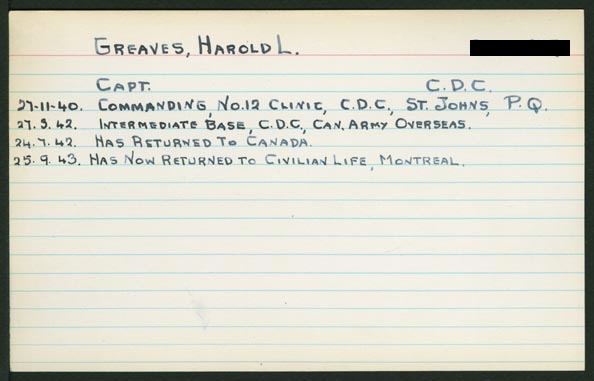 GREAVES, HAROLD L.
CAPT. C.D.C.
27-11-40. COMMANDING, NO.12 CLINIC, C.D.C., ST. JOHNS, P.Q.
27.3.42. INTERMEDIATE BASE, C.D.C, CAN. ARMY OVERSEAS.
24.7.42. HAS RETURNED TO CANADA.
25.9.43. HAS NOW RETURNED TO CIVILIAN LIFE, MONTREAL.